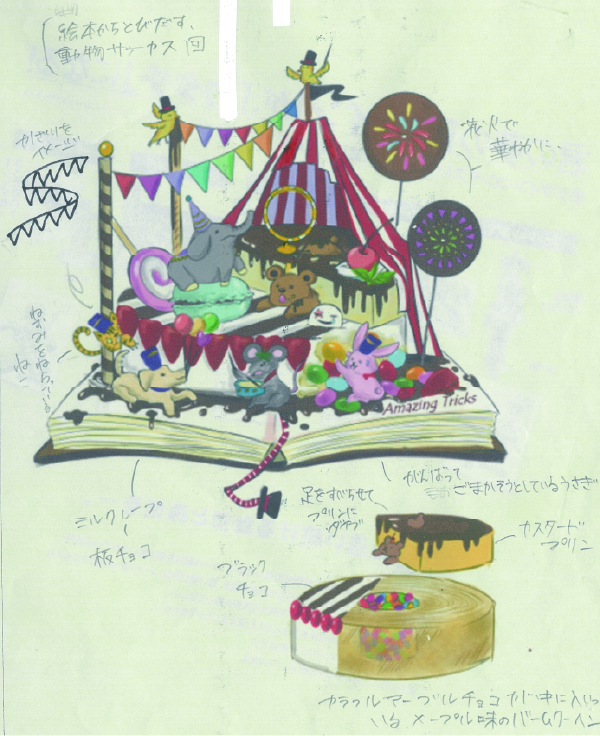 絵本からとびだす、
動物サーカス団
かざりを
イメージ
花火で
華やかに、
ねずみをねらっている
ねこ
Amazing Tricks
がんばって
ごまかそうとしているうさぎ
足をすべらせて
プリンに
ダイブ
カスタード
プリン
ミルクレープ
板チョコ
ブラック
チョコ
カラフルマーブルチョコが中に入って
いるメープル味のバームクーヘン